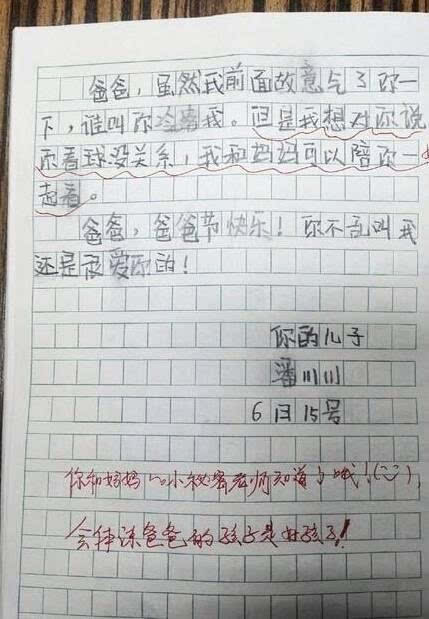 爸爸，虽然我前面故意气了你一
下，谁叫你冷落我。但是我想对你说
你看球没关系，我和妈妈可以陪你一
起看。
爸爸，爸爸节快乐！你不乱叫我
还是很爱你的！
你的儿子
潘川川
6月15号
你和妈妈的小秘密老师知道了哦！
会体谅爸爸的孩子是好孩子！